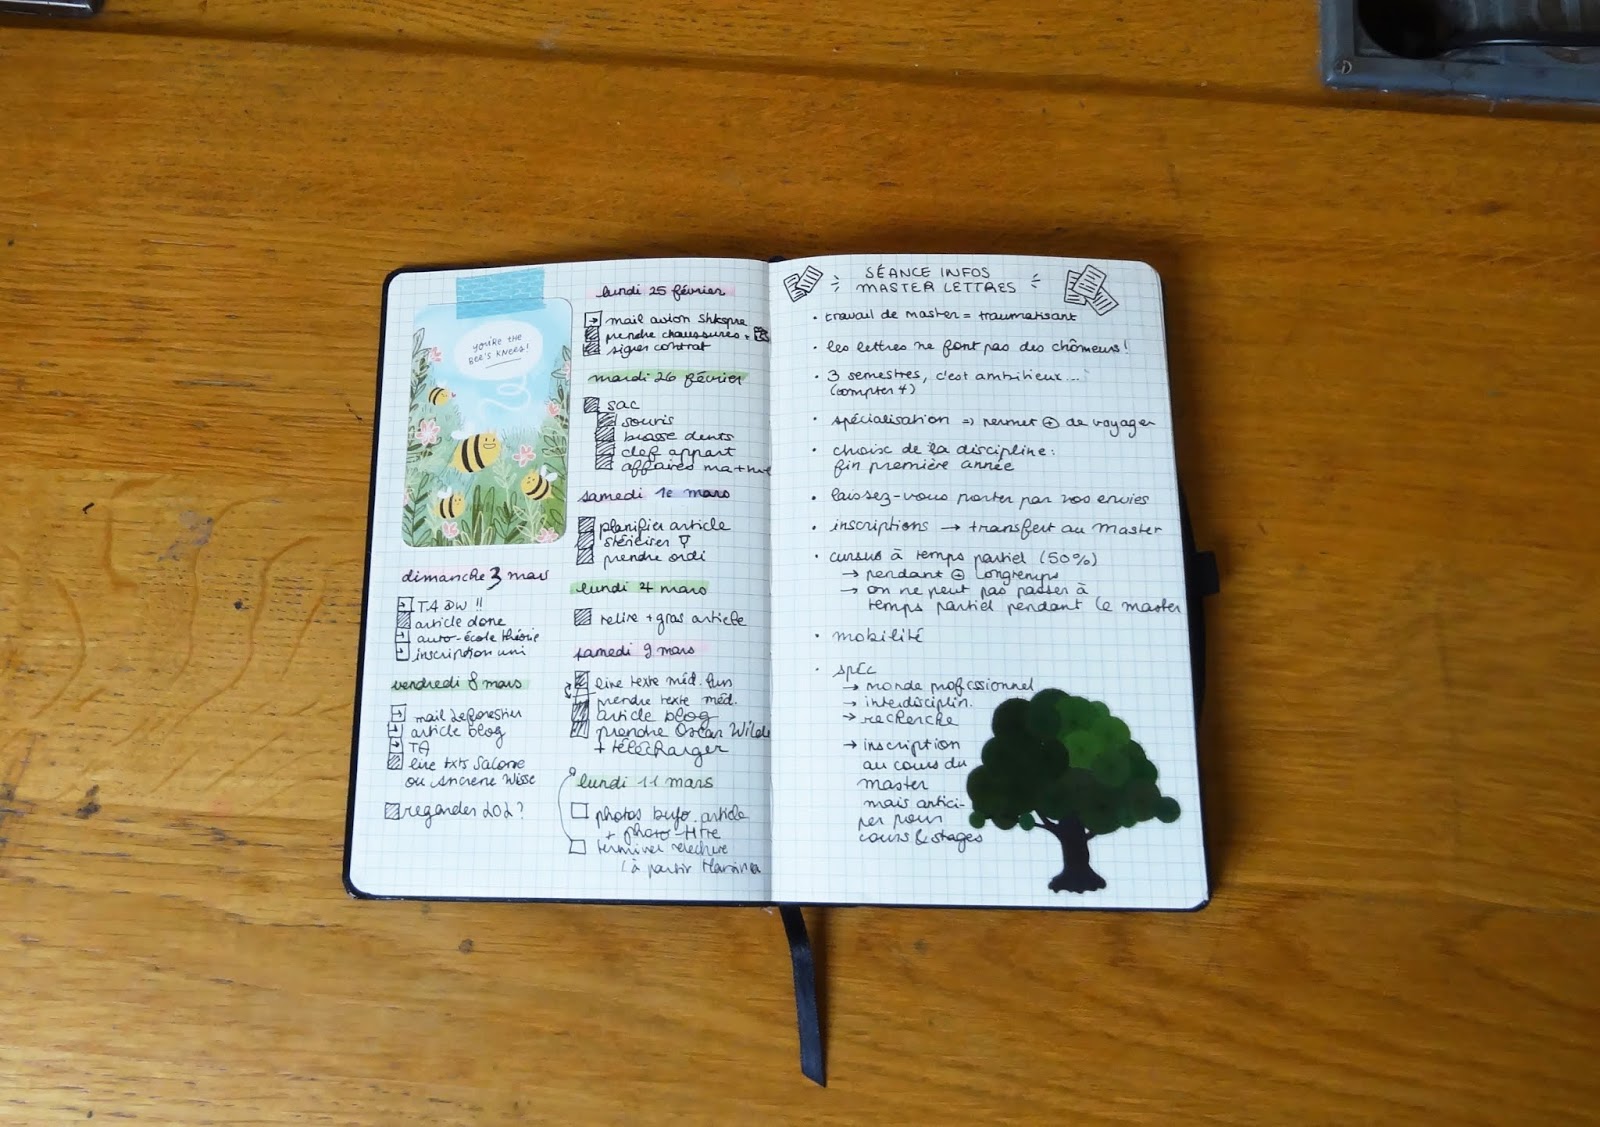 YOU'RE THE
BEE'S KNEES!
dimanche 3 mars
TA DW !!
article done
auto-école théorie
inscription uni
vendredi 8 mars
mail Leforestier
article blog
TA
lire txts Salome
ou Ancrene Wisse
regarder 202 ?
lundi 25 février
mail avion shkspre
prendre chaussures +
signer contrat
mardi 26 février
sac
souris
brosse dents
clef appart
affaires
samedi 1e mars
planifier article
stériliser
prendre ordi
lundi 4 mars
relire + gras article
samedi 9 mars
lire texte méd. lun
prendre texte méd.
article blog
prendre Oscar Wilde
+ télécharger
lundi 11 mars
photos bujo. article
+ photo-titre
terminer relecture
(à partir
SÉANCE INFOS
MASTER LETTRES
• travail de master = traumatisant
• les lettres ne font pas des chômeurs !
• 3 semestres, c'est ambitieux...
(compter 4)
• spécialisation => permet ⊕ de voyager
• choix de la discipline :
fin première année
• laissez-vous porter par vos envies
• inscriptions → transfert au Master
• cursus à temps partiel (50%)
→ pendant ⊕ longtemps
→ on ne peut pas passer à
temps partiel pendant le master
• mobilité
• spéc
→ monde professionnel
→ interdisciplin.
→ recherche
→ inscription
au cours du
master
mais antici-
per pour
cours & stages